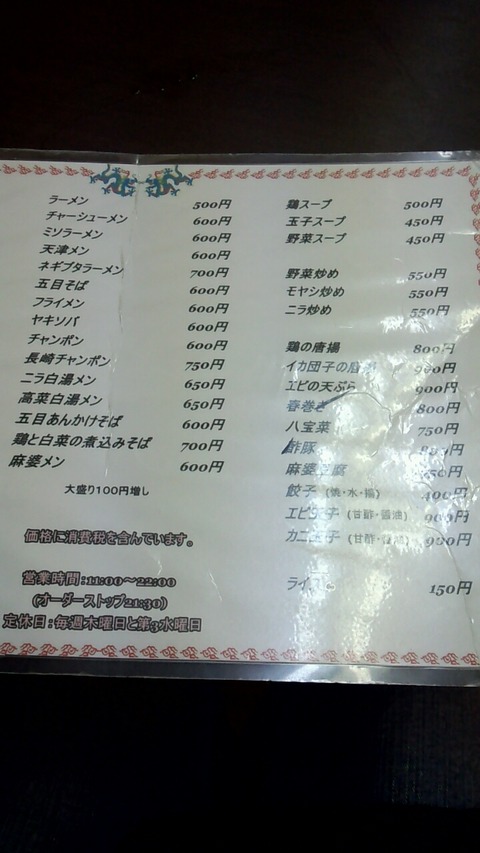 ラーメン 500円
チャーシューメン 600円
ミソラーメン 600円
天津メン 600円
ネギブタラーメン 700円
五目そば 600円
フライメン 600円
ヤキソバ 600円
チャンポン 600円
長崎チャンポン 750円
ニラ白湯メン 650円
高菜白湯メン 650円
五目あんかけそば 600円
鶏と白菜の煮込みそば 700円
麻婆メン 600円
大盛り100円増し
価格に消費税を含んでいます。
営業時間:11:00～22:00
(オーダーストップ21:30)
定休日:毎週木曜日と第3水曜日
鶏スープ 500円
玉子スープ 450円
野菜スープ 450円
野菜炒め 550円
モヤシ炒め 550円
ニラ炒め 550円
鶏の唐揚 800円
イカ団子の 900円
エビの天ぷら 900円
春巻き 800円
八宝菜 750円
酢豚 円
麻婆豆腐 円
餃子 (焼・水・揚) 400円
エビ玉子 (甘酢・醤油) 900円
カニ玉子 (甘酢・醤油) 900円
ライス 150円